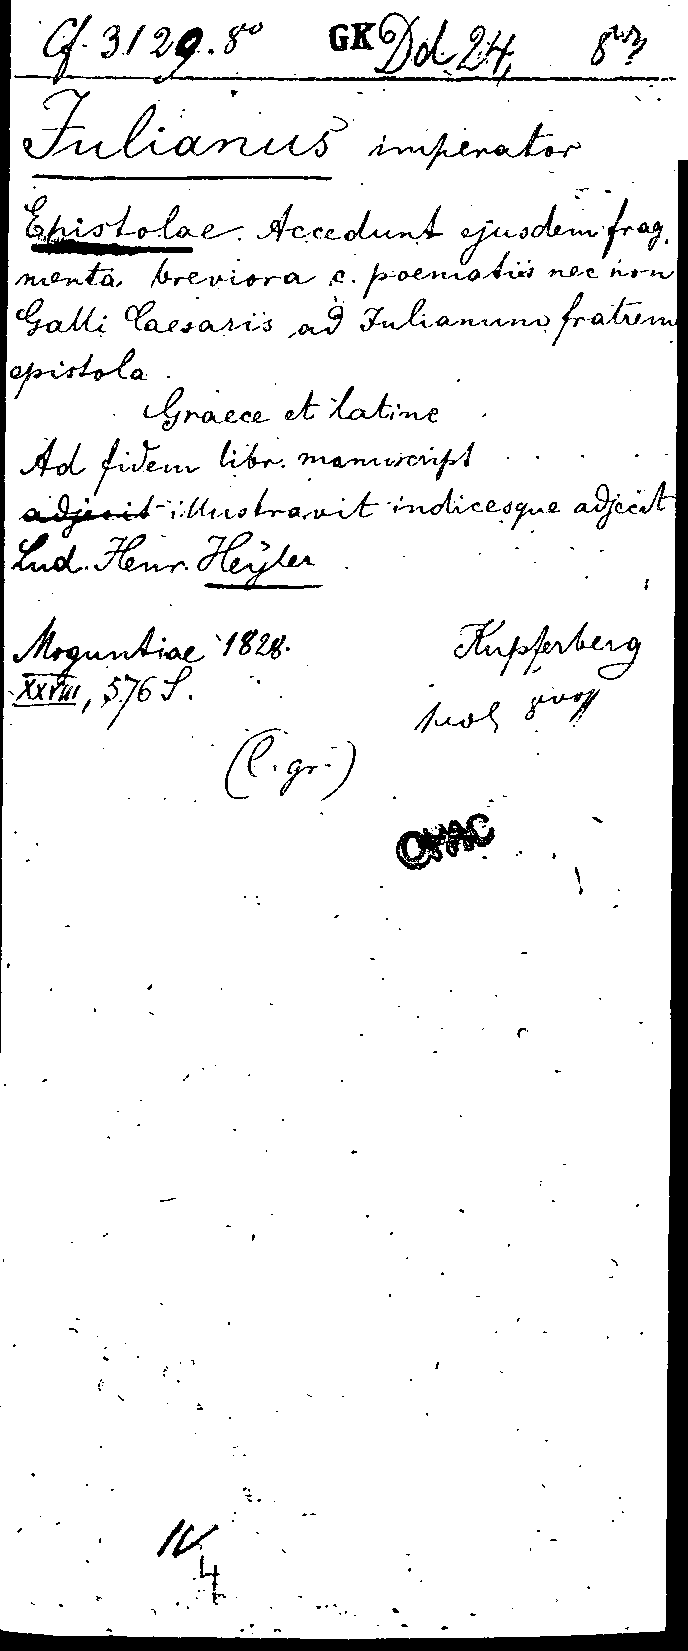 Cf. 3129. 8° GK Dd 24,
Julianus imperator
Epistolae. Accedunt ejusdem frag,
menta breviora c. poematiis nec non
Galli Caesaris ad Julianum fratrem
epistola.
Graece et latine
Ad fidem libr. manuscript
adjecit illustravit indicesque adjecit
Lud. Henr. Heÿler
Moguntiae 1828. Kupferberg
XXVIII, 576 S.
(l. gr.)
OPAC
IV
4